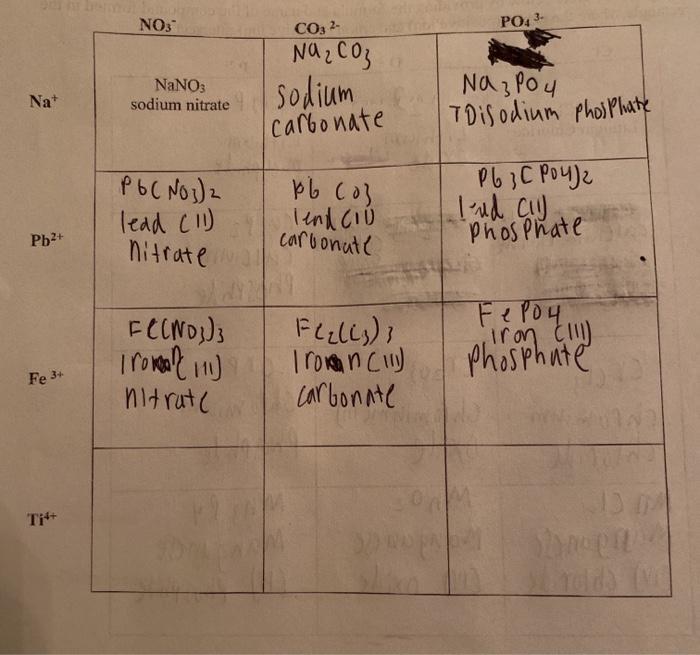 NO₃⁻ CO₃ ²⁻ PO₄ ³⁻
Na⁺
NaNO₃
sodium nitrate
Na₂CO₃
sodium
carbonate
Na₃PO₄
Disodium phosphate
Pb²⁺
Pb(NO₃)₂
lead (II)
Nitrate
Pb CO₃
lead (II)
carbonate
Pb₃(PO₄)₂
lead (II)
phosphate
Fe ³⁺
Fe(NO₃)₃
Iron (III)
nitrate
Fe₂(C₃)₃
Iron (III)
carbonate
FePO₄
iron (III)
phosphate
Ti⁴⁺